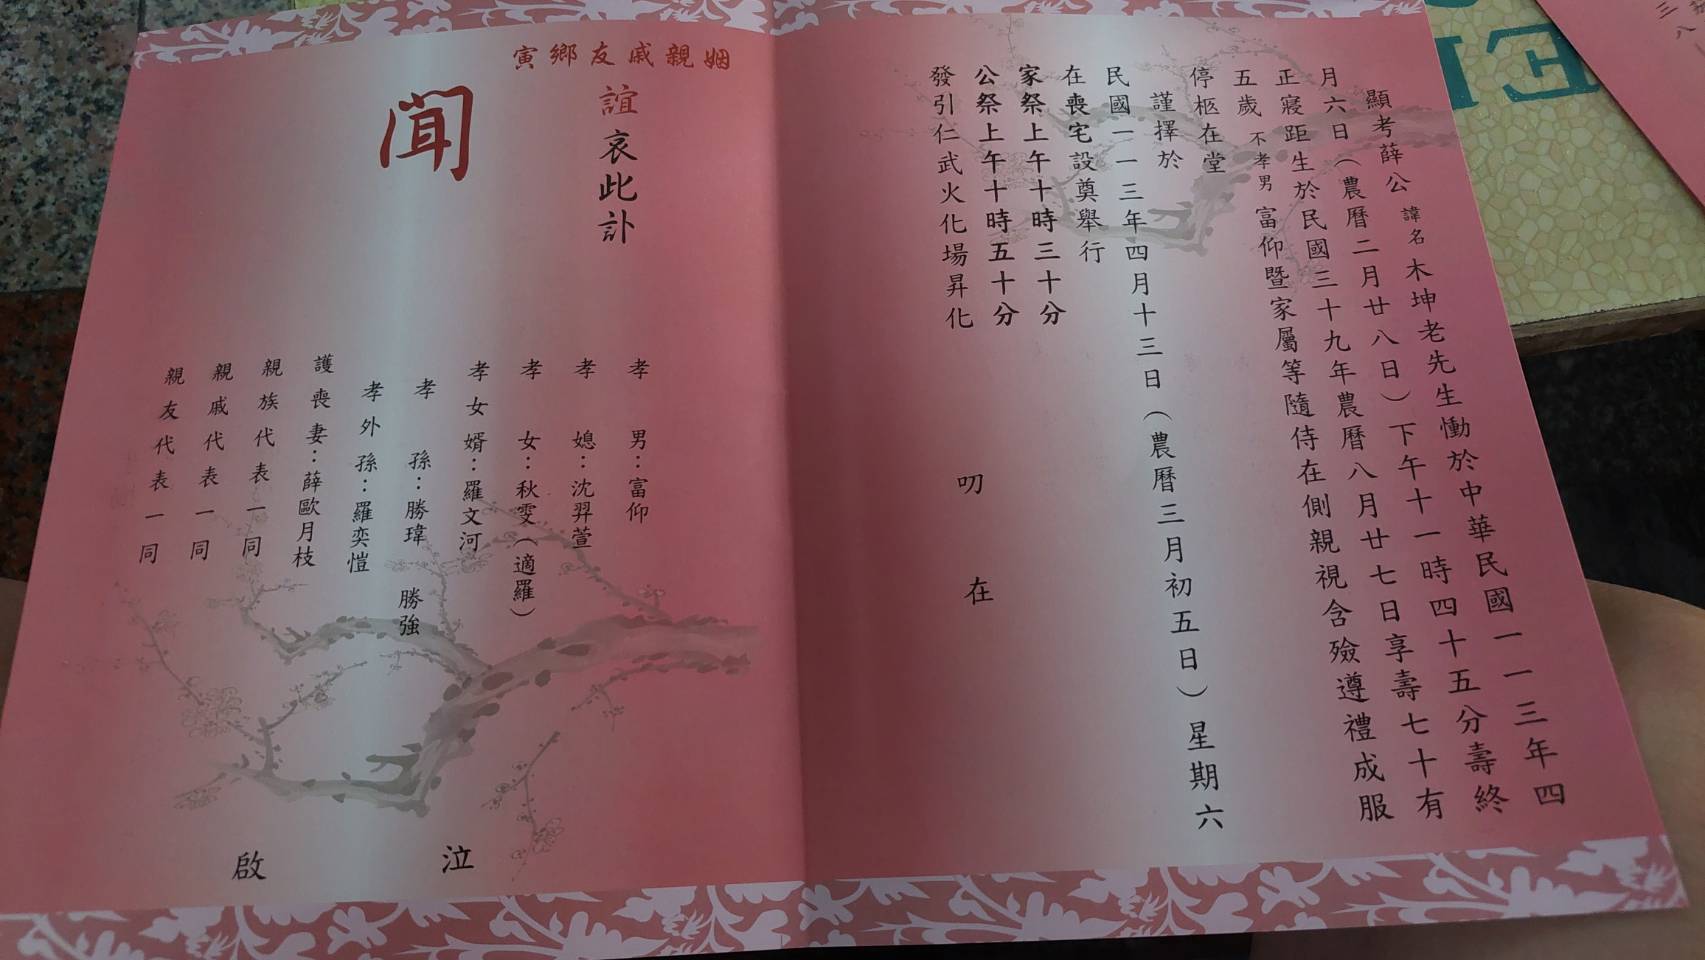 顯考薛公諱名木坤老先生慟於中華民國一一三年四
月六日（農曆二月廿八日）下午十一時四十五分壽終
正寢距生於民國三十九年農曆八月廿七日享壽七十有
五歲不孝男富仰暨家屬等隨侍在側親視含殮遵禮成服
停柩在堂
謹擇於
民國一一三年四月十三日（農曆三月初五日）星期六
在喪宅設奠舉行
家祭上午十時三十分
公祭上午十時五十分
發引仁武火化場昇化
叨在
姻親戚友鄉寅
誼哀此訃
聞
孝男：富仰
孝媳：沈羿萱
孝女：秋雯（適羅）
孝女婿：羅文河
孝孫：勝瑋 勝強
孝外孫：羅奕愷
護喪妻：薛歐月枝
親族代表一同
親戚代表一同
親友代表一同
泣啟